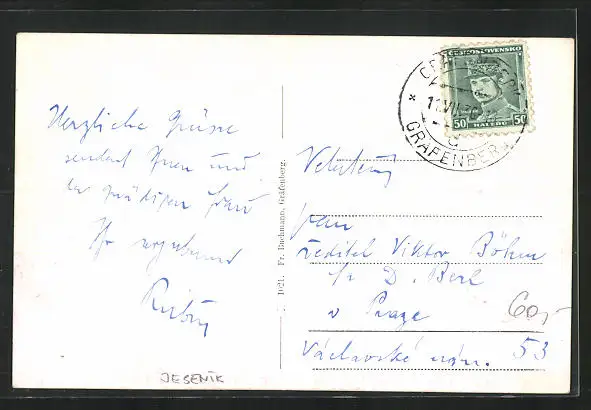 Herzliche Grüsse
sendet Ihnen und
der gnädigen Frau
Ihr ergebener
1021. Fr. Bachmann, Gräfenberg.
ČESKOSLOVENSKO
50 50
HALÉŘŮ
GRÄFENBERG
pan
ředitel Viktor Böhm
fa D. Berl
v Praze
60,-
Václavské nám. 53
JESENÍK